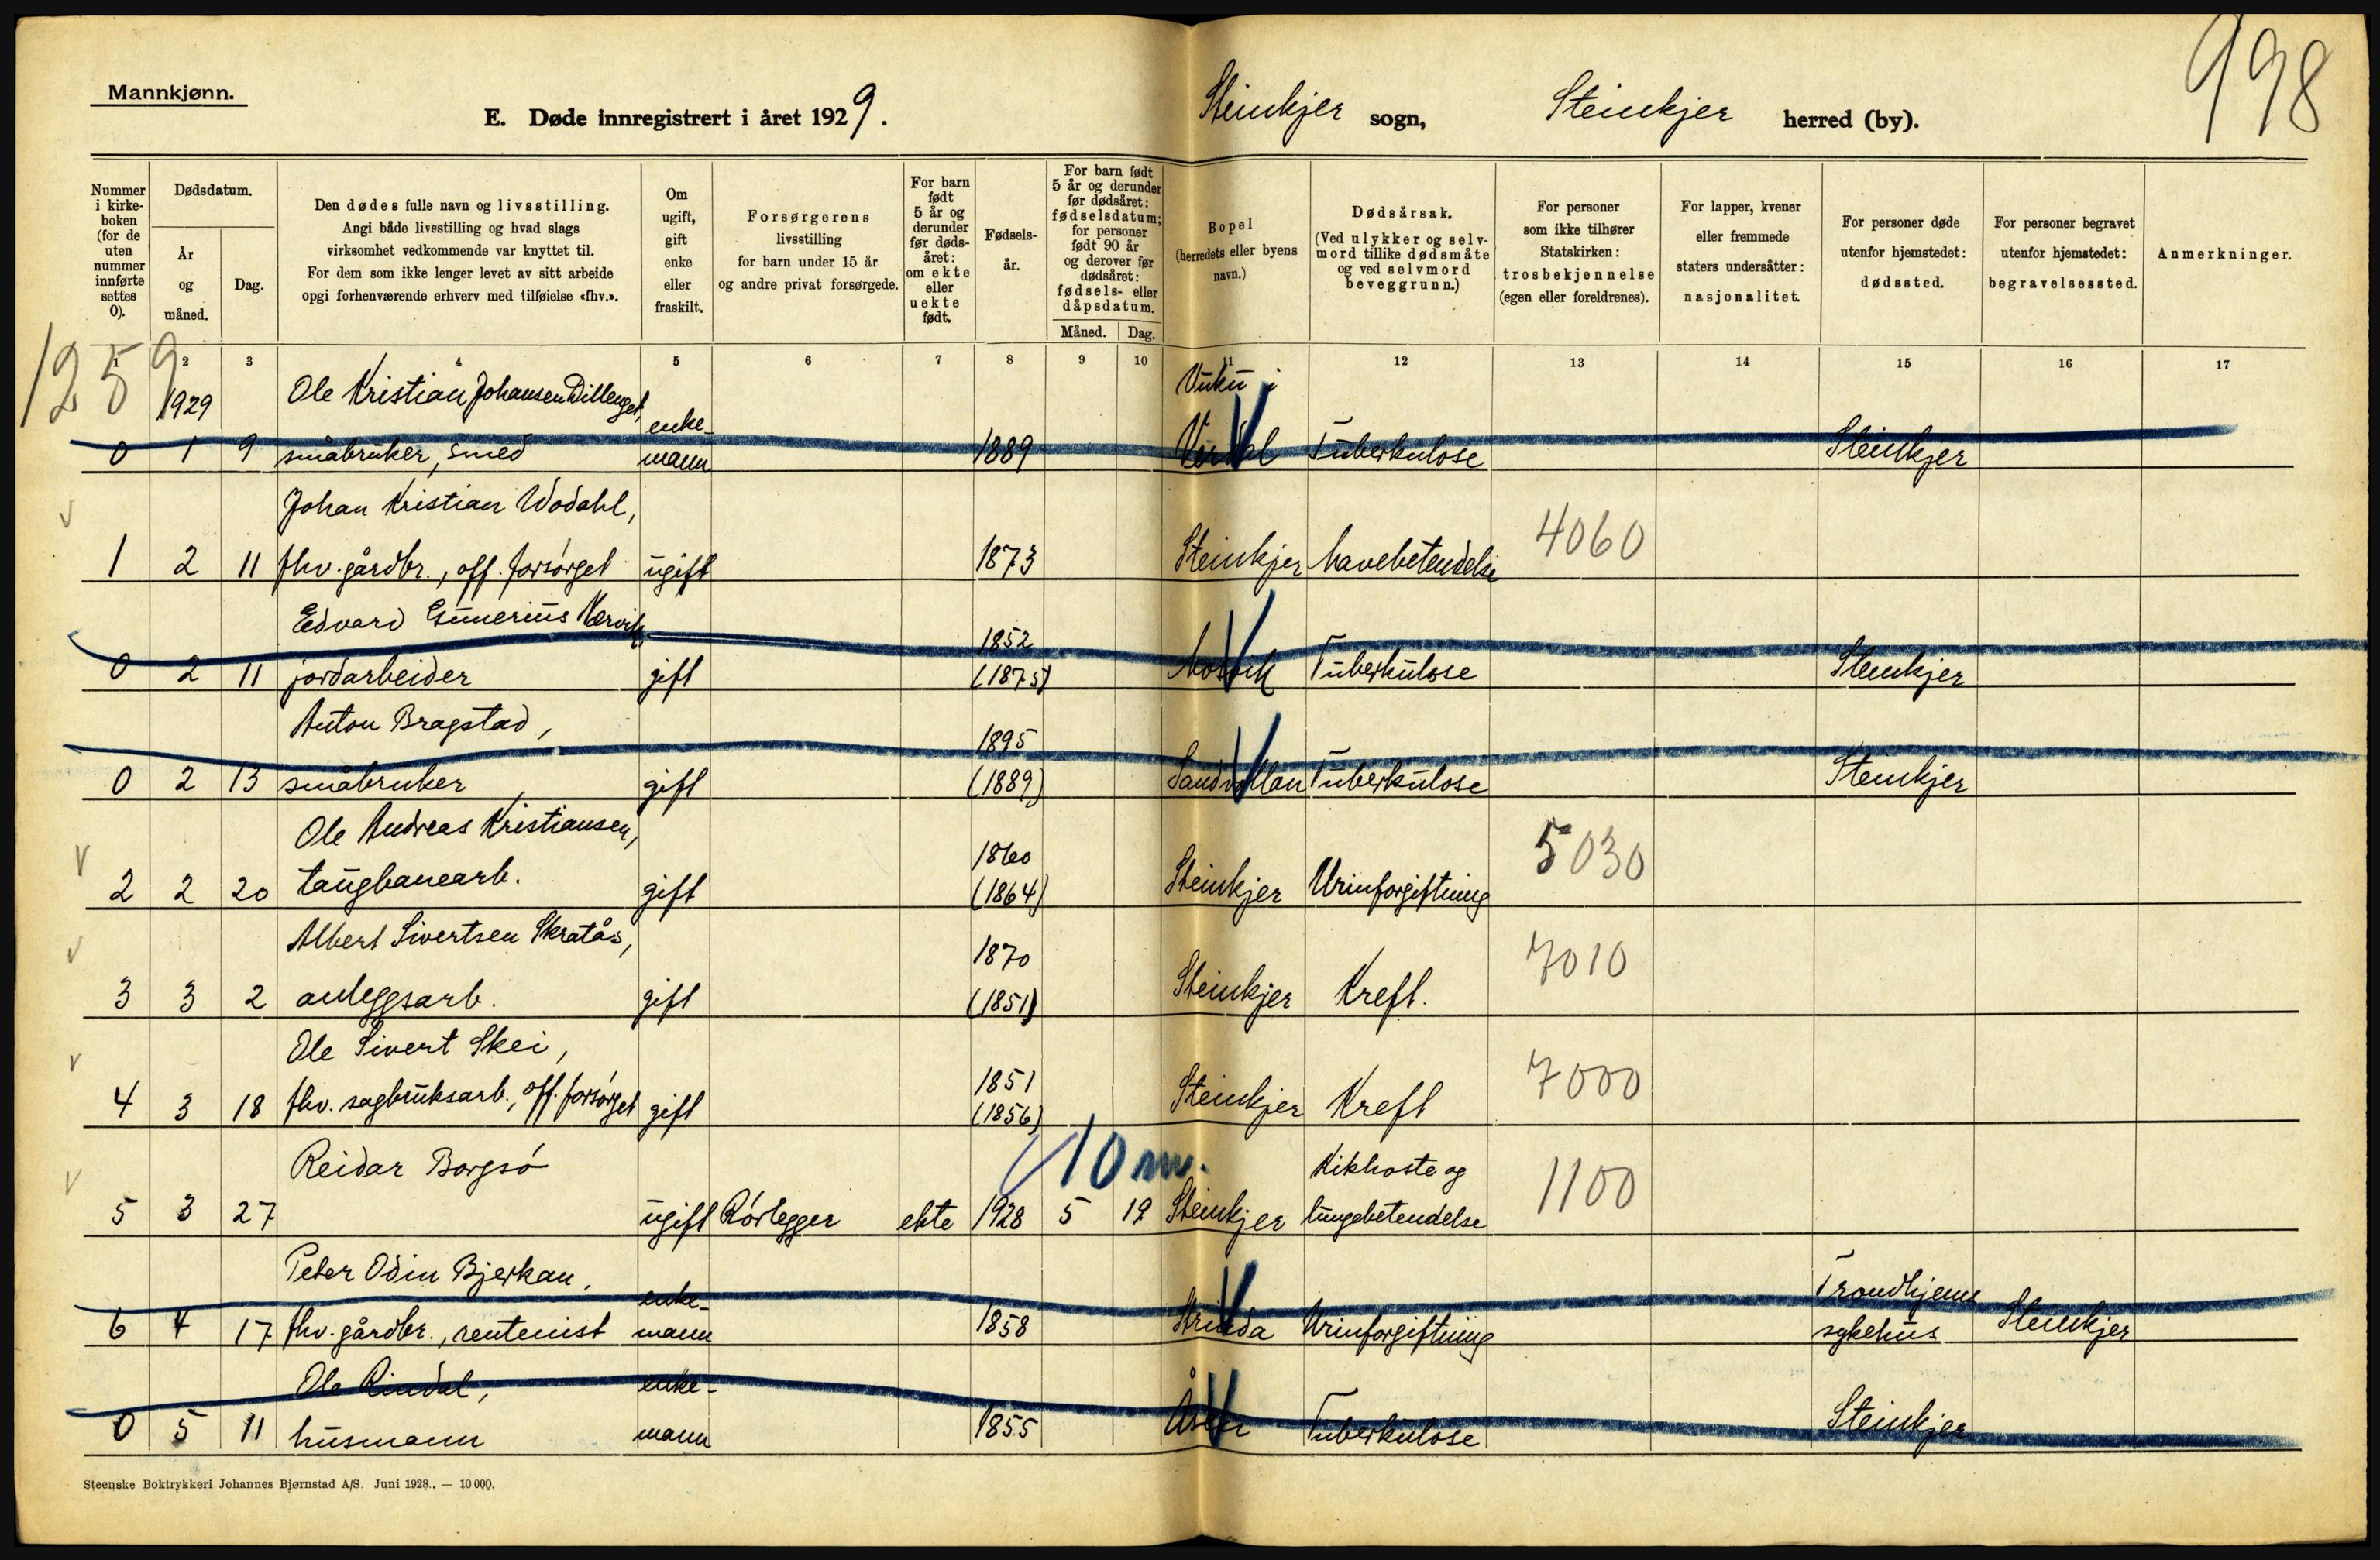 998
Mannkjønn.
E. Døde innregistrert i året 1929. Steinkjer sogn, Steinkjer herred (by).
Nummer i kirke-boken (for de uten nummer innførte settes 0).
Dødsdatum.
År og måned.
Dag.
Den dødes fulle navn og livsstilling.
Angi både livsstilling og hvad slags
virksomhet vedkommende var knyttet til.
For dem som ikke lenger levet av sitt arbeide
opgi forhenværende erhverv med tilføielse «fhv.».
Om ugift, gift enke eller fraskilt.
Forsørgerens
livsstilling
for barn under 15 år
og andre privat forsørgede.
For barn født 5 år og derunder før døds-året: om ekte eller uekte født.
Fødsels-år.
For barn født 5 år og derunder før dødsåret: fødselsdatum; for personer født 90 år og derover før dødsåret: fødsels- eller dåpsdatum.
Måned. Dag.
Bopel
(herredets eller byens
navn.)
Dødsårsak.
(Ved ulykker og selv-
mord tillike dødsmåte
og ved selvmord
beveggrunn.)
For personer
som ikke tilhører
Statskirken:
trosbekjennelse
(egen eller foreldrenes).
For lapper, kvener
eller fremmede
staters undersåtter:
nasjonalitet.
For personer døde
utenfor hjemstedet:
dødssted.
For personer begravet
utenfor hjemstedet:
begravelsessted.
Anmerkninger.
1259
1 2 3 4 5 6 7 8 9 10 11 12 13 14 15 16 17
1929 Ole Kristian Johansen Dillenget, Vuku i
0 1 9 småbruker, smed enke-mann 1889 Verdal Tuberkulose Steinkjer
Johan Kristian Wodahl,
1 2 11 fhv. gårdbr., off. forsørget ugift 1873 Steinkjer Mavebetendelse 4060
Edvard Gunerius Nervik, 1852
0 2 11 jordarbeider gift (1875) Mosvik Tuberkulose Steinkjer
Anton Bragstad, 1895
0 2 13 småbruker gift (1889) Sandvollan Tuberkulose Steinkjer
Ole Andreas Kristiansen, 1860
2 2 20 taugbanearb. gift (1864) Steinkjer Urinforgiftning 5030
Albert Sivertsen Skratås, 1870
3 3 2 anleggsarb. gift (1851) Steinkjer Kreft. 7010
Ole Sivert Skei, 1851
4 3 18 fhv. sagbruksarb., off. forsørget gift (1856) Steinkjer Kreft 7000
Reidar Borgsø 10 m. Kikhoste og
5 3 27 ugift Rørlegger ekte 1928 5 19 Steinkjer lungebetendelse 1100
Peter Odin Bjerkan, enke- Trondhjems
6 4 17 fhv. gårdbr., rentenist mann 1858 Strinda Urinforgiftning sykehus Steinkjer
Ole Rindal, enke-
0 5 11 husmann mann 1855 Åsen Tuberkulose Steinkjer
Steenske Boktrykkeri Johannes Bjørnstad A/S. Juni 1928. — 10 000.